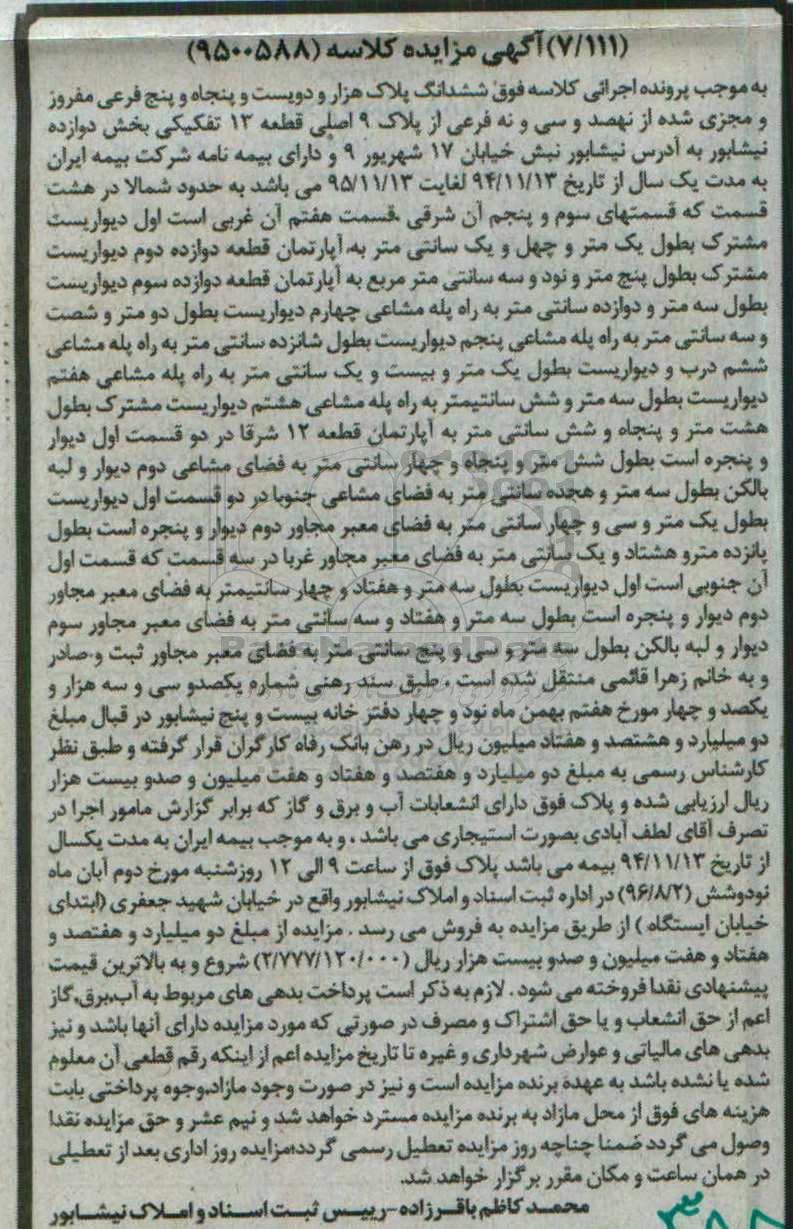 (۷/۱۱۱) آگهی مزایده کلاسه (۹۵۰۰۵۸۸)
به موجب پرونده اجرائی کلاسه فوق ششدانگ پلاک هزار و دویست و پنجاه و پنج فرعی مفروز
و مجزی شده از نهصد و سی و نه فرعی از پلاک ۹ اصلی قطعه ۱۳ تفکیکی بخش دوازده
نیشابور به آدرس نیشابور نبش خیابان ۱۷ شهریور ۹ و دارای بیمه نامه شرکت بیمه ایران
به مدت یک سال از تاریخ ۹۴/۱۱/۱۳ لغایت ۹۵/۱۱/۱۳ می باشد به حدود شمالا در هشت
قسمت که قسمتهای سوم و پنجم آن شرقی ،قسمت هفتم آن غربی است اول دیواریست
مشترک بطول یک متر و چهل و یک سانتی متر به، آپارتمان قطعه دوازده دوم دیواریست
مشترک بطول پنج متر و نود و سه سانتی متر مربع به آپارتمان قطعه دوازده سوم دیواریست
بطول سه متر و دوازده سانتی متر به راه پله مشاعی چهارم دیواریست بطول دو متر و شصت
و سه سانتی متر به راه پله مشاعی پنجم دیواریست بطول شانزده سانتی متر به راه پله مشاعی
ششم درب و دیواریست بطول یک متر و بیست و یک سانتی متر به راه پله مشاعی هفتم
دیواریست بطول سه متر و شش سانتیمتر به راه پله مشاعی هشتم دیواریست مشترک بطول
هشت متر و پنجاه و شش سانتی متر به آپارتمان قطعه ۱۲ شرقا در دو قسمت اول دیوار
و پنجره است بطول شش متر و پنجاه و چهار سانتی متر به فضای مشاعی دوم دیوار و لبه
بالکن بطول سه متر و هجده سانتی متر به فضای مشاعی جنوبا در دو قسمت اول دیواریست
بطول یک متر و سی و چهار سانتی متر به فضای معبر مجاور دوم دیوار و پنجره است بطول
پانزده مترو هشتاد و یک سانتی متر به فضای معبر مجاور غربا در سه قسمت که قسمت اول
آن جنوبی است اول دیواریست بطول سه متر و هفتاد و چهار سانتیمتر به فضای معبر مجاور
دوم دیوار و پنجره است بطول سه متر و هفتاد و سه سانتی متر به فضای معبر مجاور سوم
دیوار و لبه بالکن بطول سه متر و سی و پنج سانتی متر به فضای معبر مجاور ثبت و صادر
و به خانم زهرا قائمی منتقل شده است ، طبق سند رهنی شماره یکصدو سی و سه هزار و
یکصد و چهار مورخ هفتم بهمن ماه نود و چهار دفتر خانه بیست و پنج نیشابور در قبال مبلغ
دو میلیارد و هشتصد و هفتاد میلیون ریال در رهن بانک رفاه کارگران قرار گرفته و طبق نظر
کارشناس رسمی به مبلغ دو میلیارد و هفتصد و هفتاد و هفت میلیون و صدو بیست هزار
ریال ارزیابی شده و پلاک فوق دارای انشعابات آب و برق و گاز که برابر گزارش مامور اجرا در
تصرف آقای لطف آبادی بصورت استیجاری می باشد ، و به موجب بیمه ایران به مدت یکسال
از تاریخ ۹۴/۱۱/۱۳ بیمه می باشد پلاک فوق از ساعت ۹ الی ۱۲ روزشنبه مورخ دوم آبان ماه
نودوشش (۹۶/۸/۲) در اداره ثبت اسناد و املاک نیشابور واقع در خیابان شهید جعفری (ابتدای
خیابان ایستگاه ) از طریق مزایده به فروش می رسد . مزایده از مبلغ دو میلیارد و هفتصد و
هفتاد و هفت میلیون و صدو بیست هزار ریال (۲/۷۷۷/۱۲۰/۰۰۰) شروع و به بالاترین قیمت
پیشنهادی نقدا فروخته می شود . لازم به ذکر است پرداخت بدهی های مربوط به آب،برق،گاز
اعم از حق انشعاب و یا حق اشتراک و مصرف در صورتی که مورد مزایده دارای آنها باشد و نیز
بدهی های مالیاتی و عوارض شهرداری و غیره تا تاریخ مزایده اعم از اینکه رقم قطعی آن معلوم
شده یا نشده باشد به عهده برنده مزایده است و نیز در صورت وجود مازاد،وجوه پرداختی بابت
هزینه های فوق از محل مازاد به برنده مزایده مسترد خواهد شد و نیم عشر و حق مزایده نقدا
وصول می گردد ضمنا چناچه روز مزایده تعطیل رسمی گردد،مزایده روز اداری بعد از تعطیلی
در همان ساعت و مکان مقرر برگزار خواهد شد.
محمد کاظم باقرزاده -رییس ثبت اسناد و املاک نیشابور